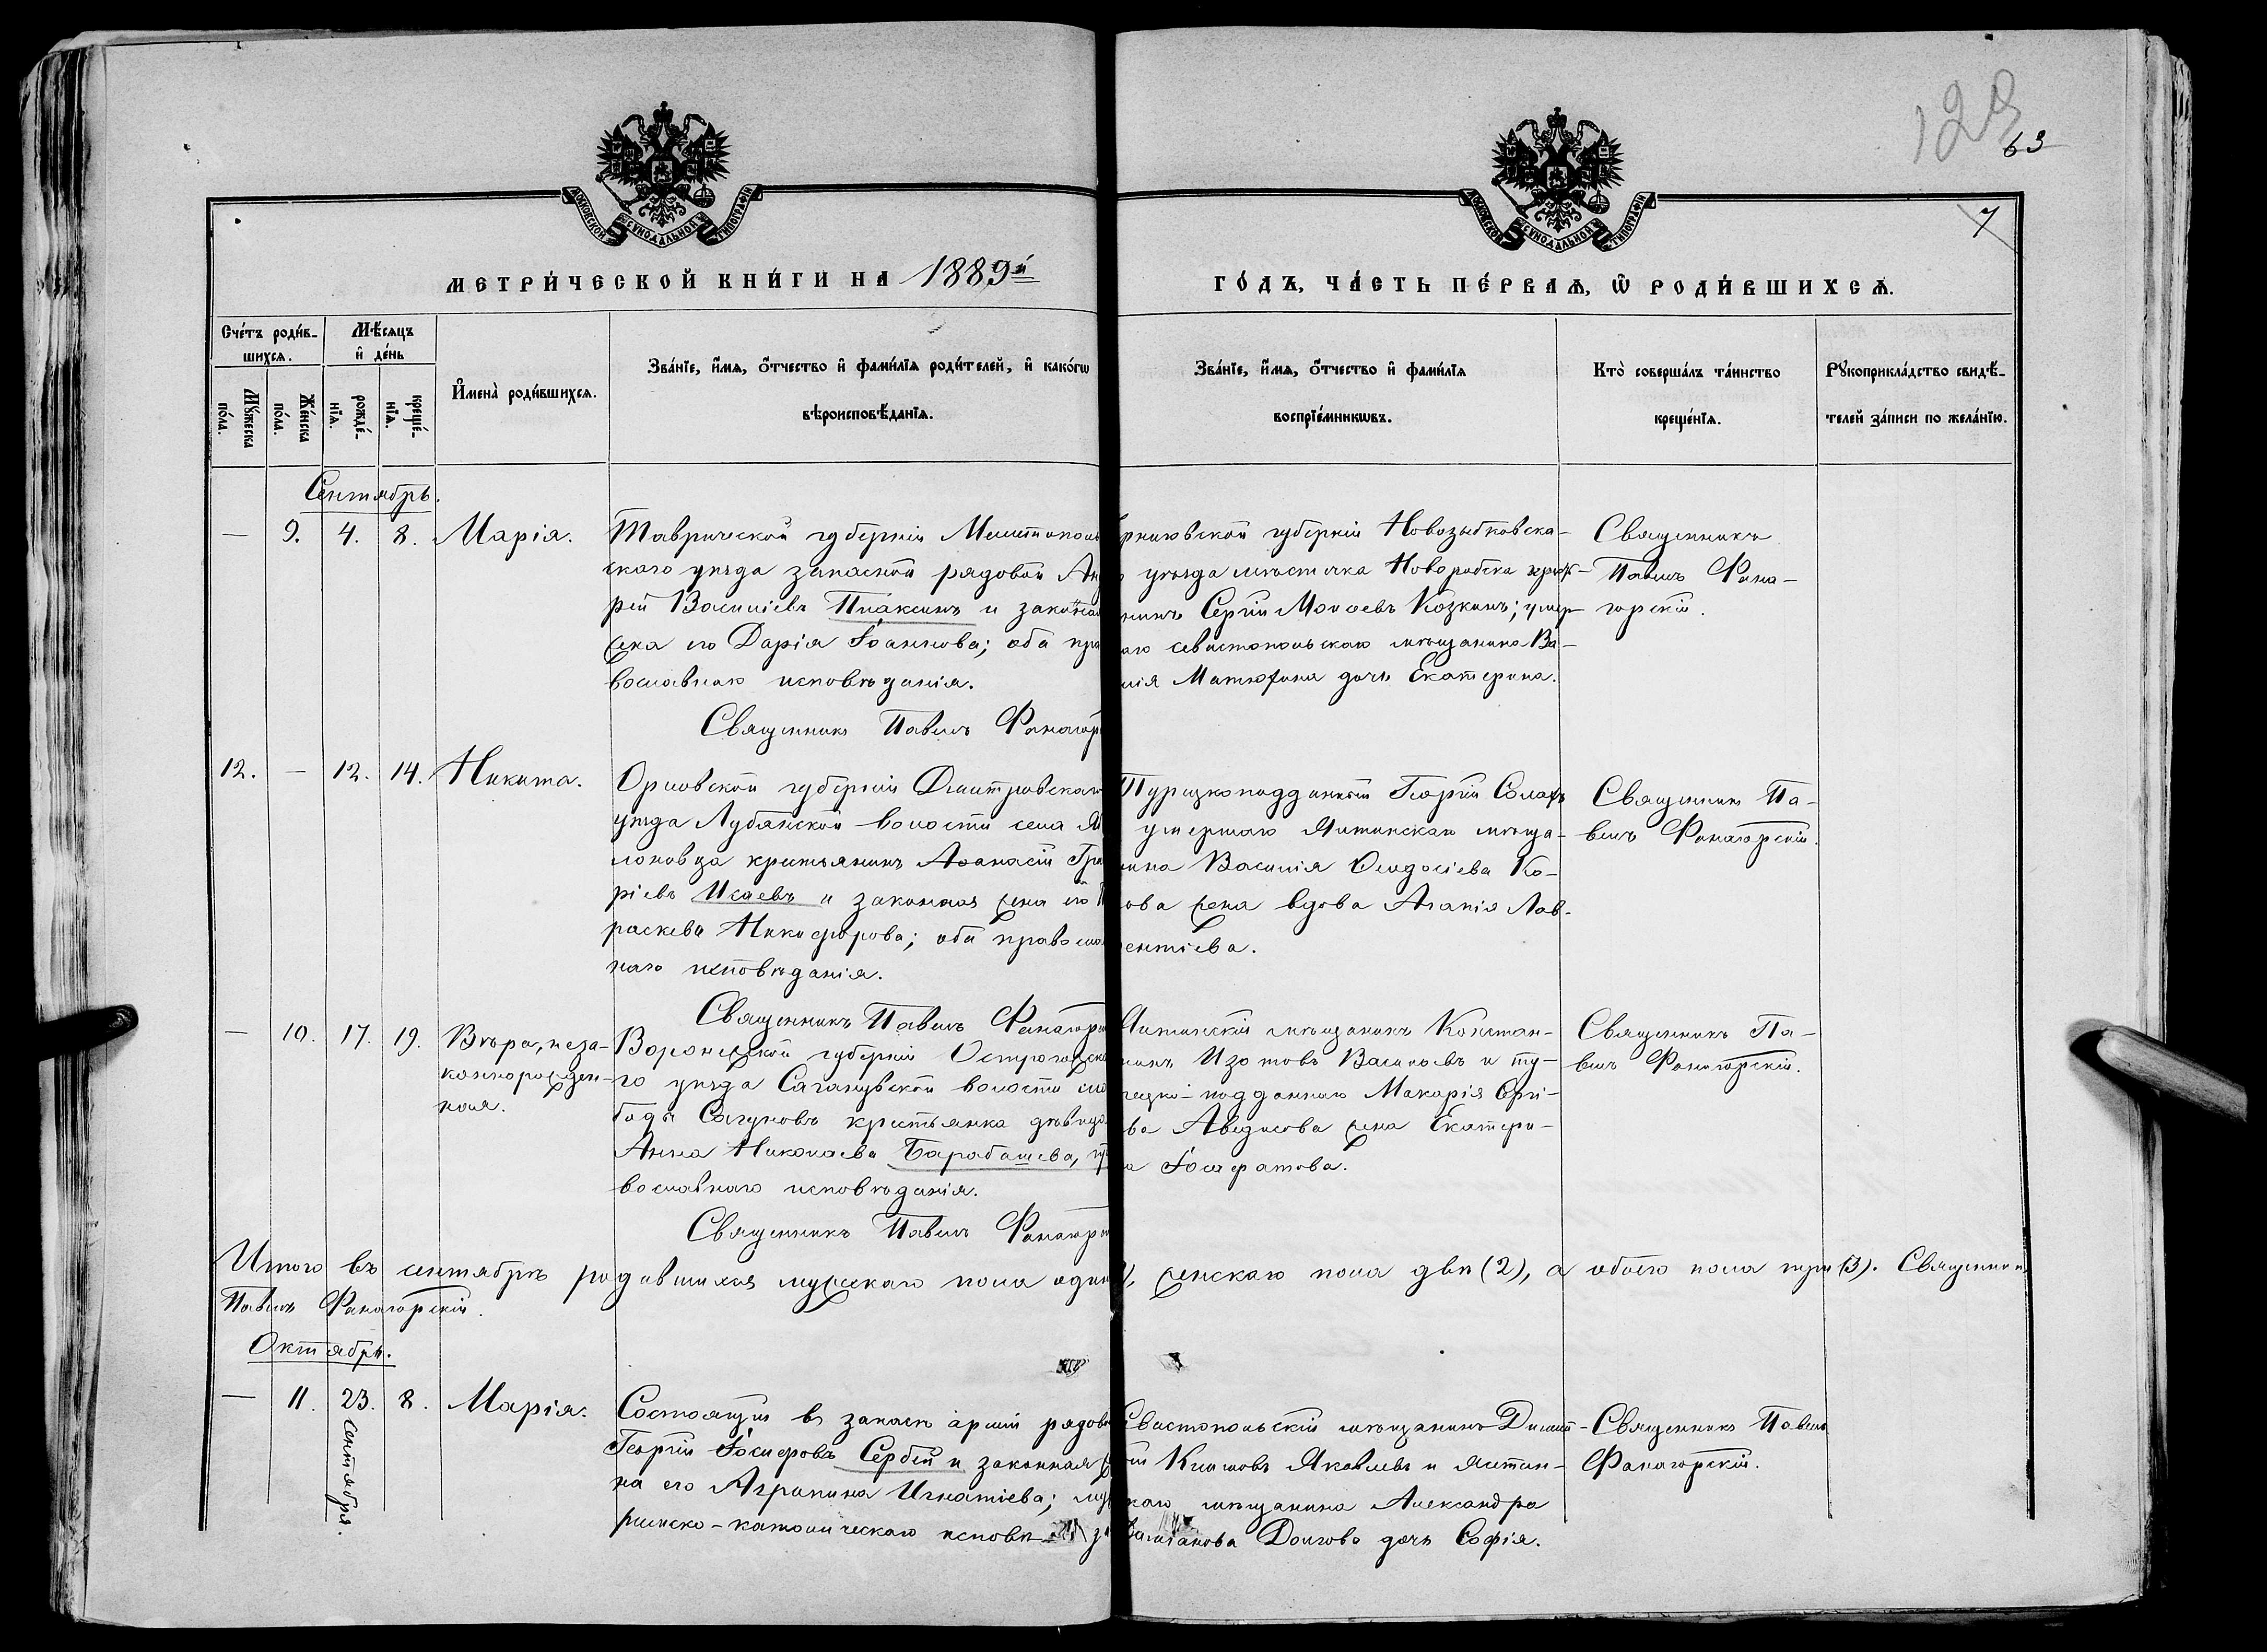 128
63
МОСКОВСКОЙ СѴНОДАЛЬНОЙ ТИПОГРАФІИ
МОСКОВСКОЙ СѴНОДАЛЬНОЙ ТИПОГРАФІИ
7
МЕТРИ́ЧЕСКОЙ КНИ́ГИ НА 1889й
ГО́ДЪ, ЧА́СТЬ ПЕ́РВАѦ, Ѡ҆ РОДИ́ВШИХСѦ.
Сче́тъ роди́в-
шихсѧ.
Мѣ́сяцъ
и҆ де́нь
Мꙋ́жеска
по́ла.
Же́нска
по́ла.
рожде́-
нїѧ.
креще́-
нїѧ.
И҆мена̀ роди́вшихсѧ.
Зва́нїе, и҆́мѧ, ѻ҆́тчество и҆ фами́лїѧ роди́телей, и҆ како́гѡ
вѣроисповѣ́данїѧ.
Зва́нїе, и҆́мѧ, ѻ҆́тчество и҆ фами́лїѧ
воспрїе́мникѡвъ.
Кто̀ соверша́лъ та́инство
креще́нїѧ.
Рꙋкоприкла́дство свидѣ́-
телей за́писи по жела́нїю.
Сентябрь.
— 9. 4. 8. Марія.
Таврической губерніи Мелитополь
скаго уѣзда запасной рядовой Анд
рей Василіевъ Плаксинъ и законная
жена его Дарія Іоаннова; оба пра
вославнаго исповѣданія.
Священникъ Павелъ Фанагор
рниговской губерніи Новозыбковска-
уѣзда мѣстечка Новоропска крест-
нинъ Сергій Моисеевъ Козкинъ; умер-
аго севастопольскаго мѣщанина Ва-
лія Матюхина дочь Екатерина.
Священникъ
Павелъ Фана-
горскій.
12. — 12. 14. Никита.
Орловской губерніи Дмитровскаго
уѣзда Лубянской волости села
лоновца крестьянинъ Аѳанасій Гри
ріевъ Исаевъ и законная жена его П
раскева Никифорова; оба православ
наго исповѣданія.
Священникъ Павелъ Фанагорс
Турецкоподданный Георгій
умершаго Ялтинскаго мѣща-
нина Василія Ѳеодосіева Ко-
ова жена вдова Агапія Лав-
рентіева.
Священникъ Па-
велъ Фанагорскій.
— 10. 17. 19. Вѣра, неза-
коннорожден-
ная.
Воронежской губерніи Острогожска
го уѣзда Сагуновской волости сло
боды Сагуновъ крестьянка дѣвица
Анна Николаева Барабашева, пра
вославнаго исповѣданія.
Священникъ Павелъ Фанагорс
Ялтинскій мѣщанинъ Констан-
тинъ Изотовъ Васильевъ и ту-
рецко-подданнаго Макарія
ва Аведисова жена Екатери-
на Іосафатова.
Священникъ Па-
велъ Фанагорскій.
Итого въ сентябрѣ родившихся мужескаго пола одинъ, женскаго пола двѣ (2), а обоего пола три (3). Священникъ
Павелъ Фанагорскій.
Октябрь.
— 11. 23. 8. Марія.
Сентября.
Состоящій въ запасѣ арміи рядовой
Георгій Іосифовъ Сербей и законная же
на его Агрипина Игнатіева; муж
римско-католическаго исповѣ
Севастопольскій мѣщанинъ Димит-
рій Климовъ Яковлевъ и Ялтин-
скаго мѣщанина Александра
Долгова дочь Софія.
Священникъ Павелъ
Фанагорскій.